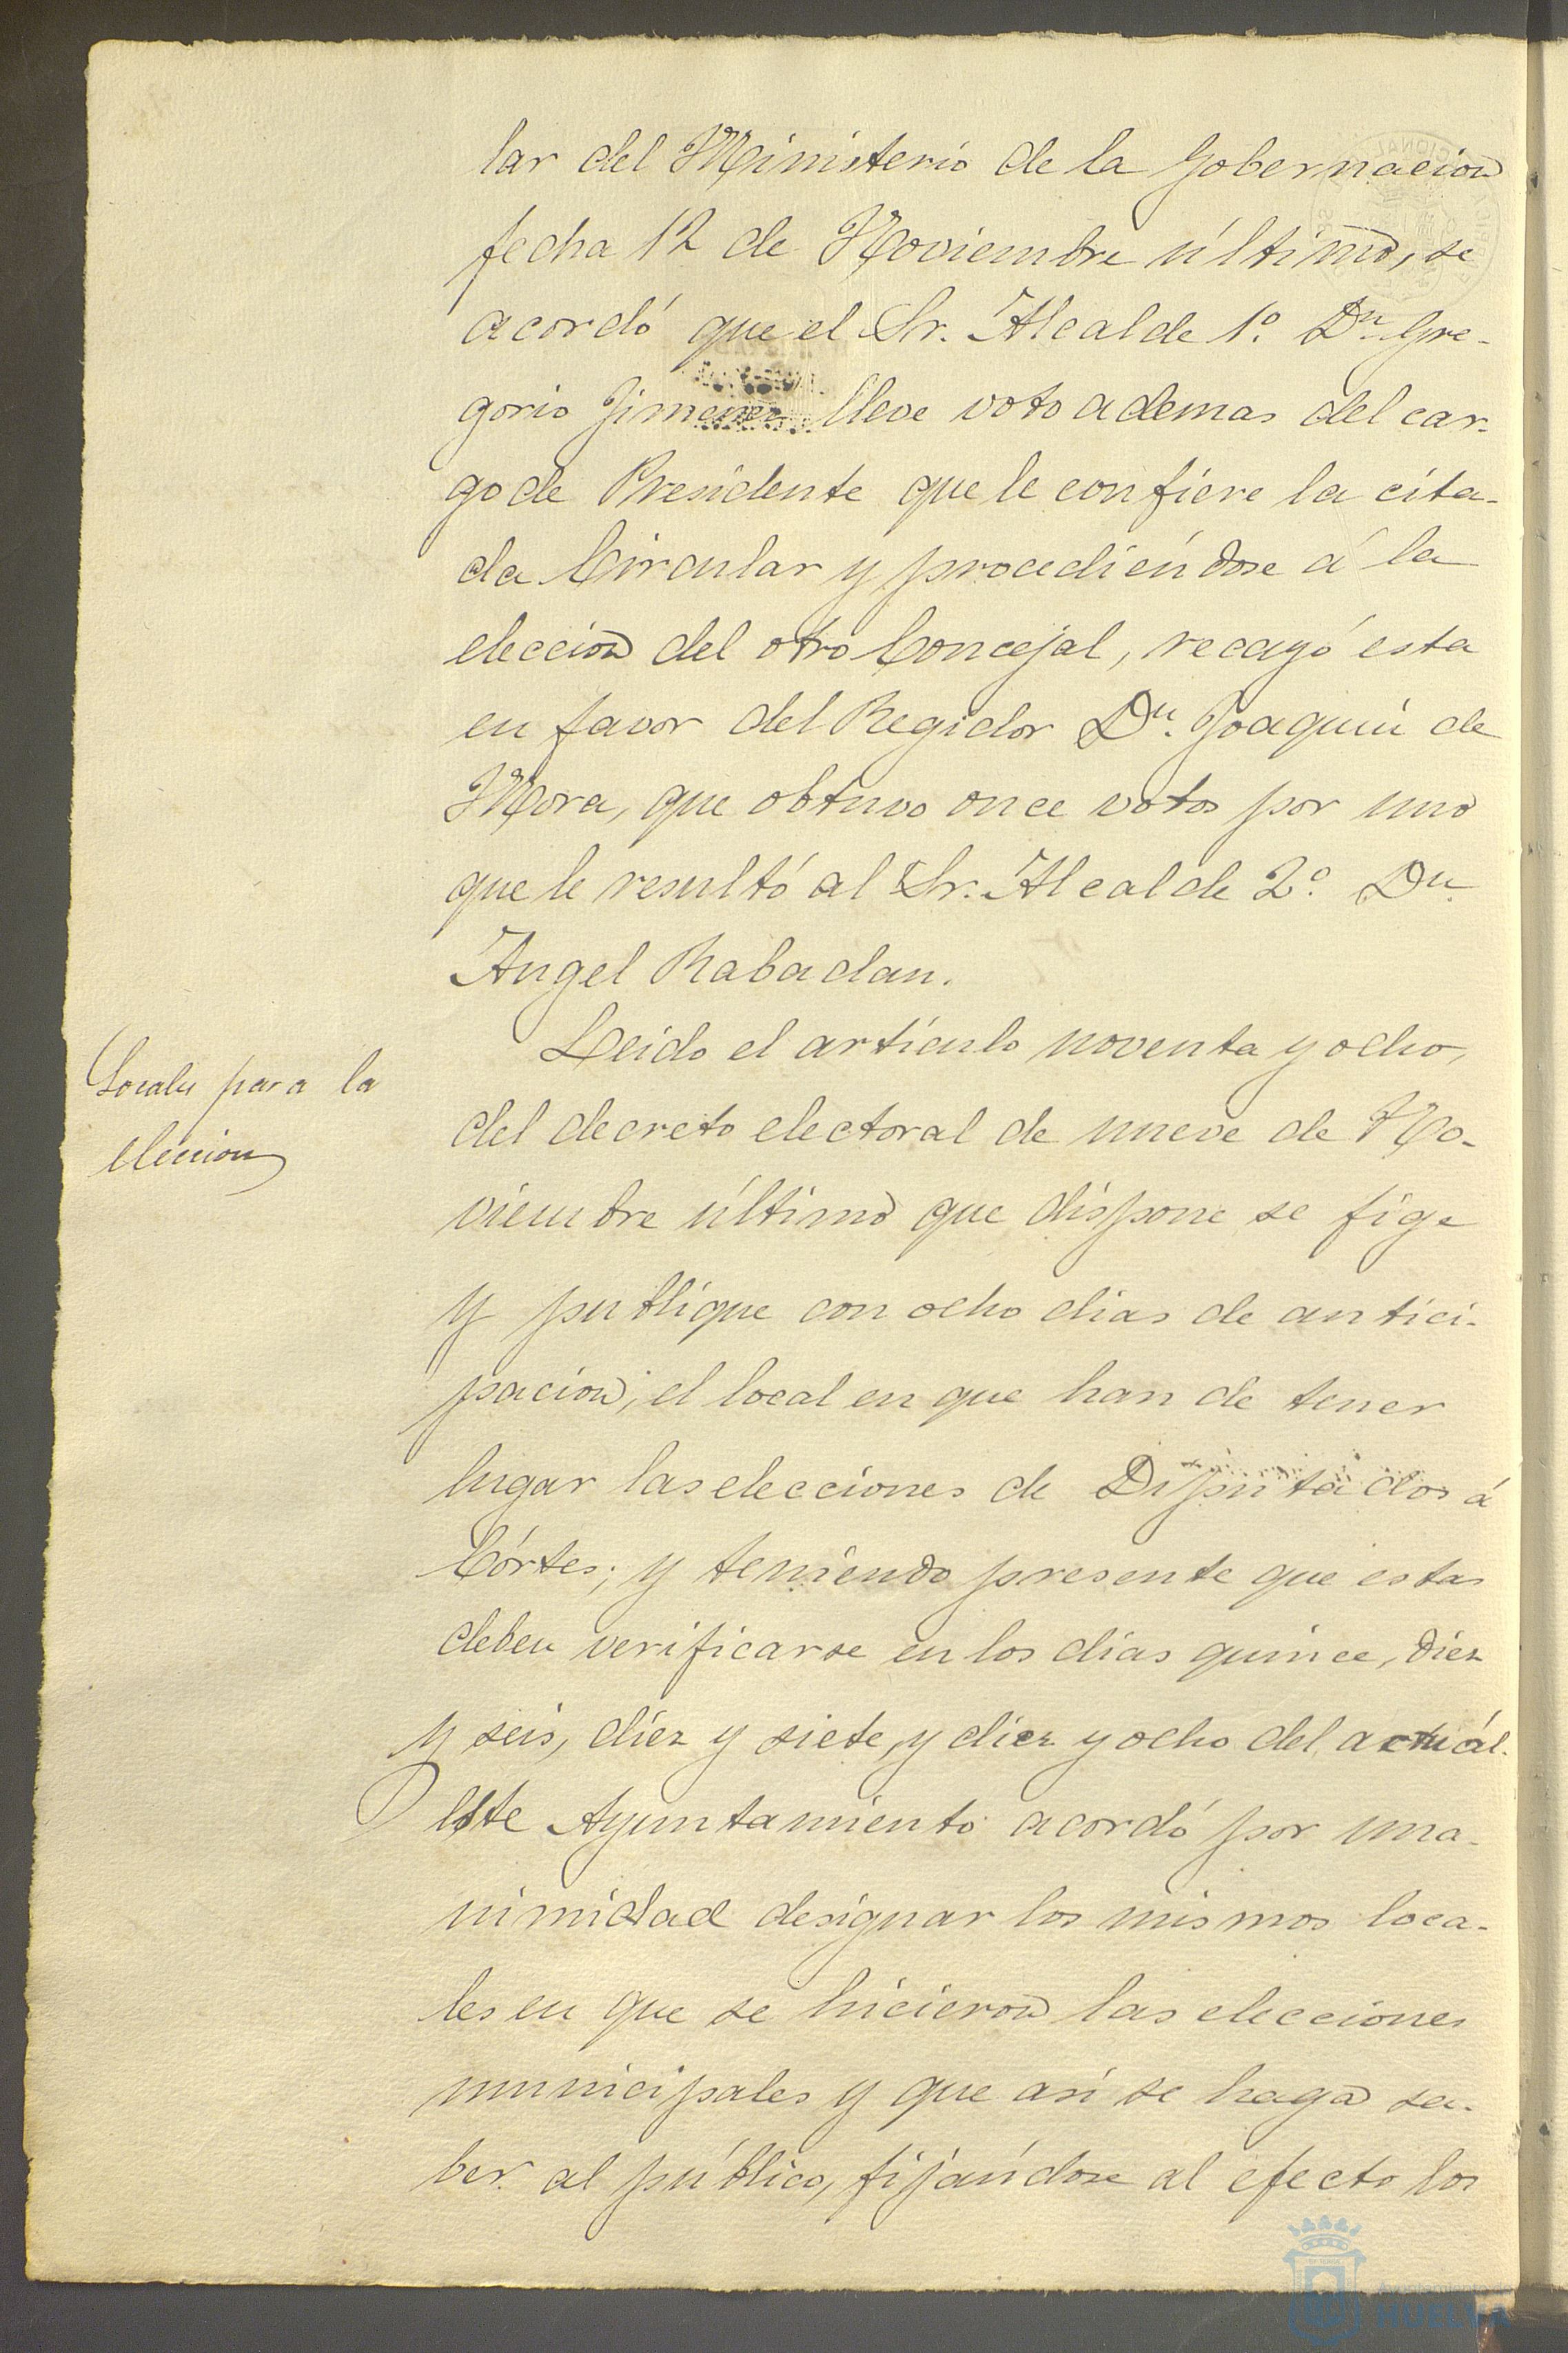 lar del Ministerio de la Gobernacion
fecha 12 de Noviembre último, se
acordó que el Sr. Alcalde 1º. Dn. Gre-
gorio Jimenez lleve voto ademas del car-
go de Presidente que le confiere la cita-
da Circular y procediéndose á la
eleccion del otro Concejal, recayó esta
en favor del Regidor Dn. Joaquin de
Mora, que obtuvo once votos por uno
que le resultó al Sr. Alcalde 2º. Dn.
Angel Rabadan.
Locales para la
eleccion
Leido el artículo noventa y ocho,
del decreto electoral de nueve de No-
viembre último que dispone se fige
y publique con ocho dias de antici-
pacion, el local en que han de tener
lugar las elecciones de Diputados á
Córtes; y teniendo presente que estas
deben verificarse en los dias quince, diez
y seis, diez y siete, y diez y ocho del actuál.
Este Ayuntamiento acordó por una-
nimidad designar los mismos loca-
les en que se hicieron las elecciones
municipales y que asi se haga sa-
ber al público, fijándose al efecto los
HUELVA